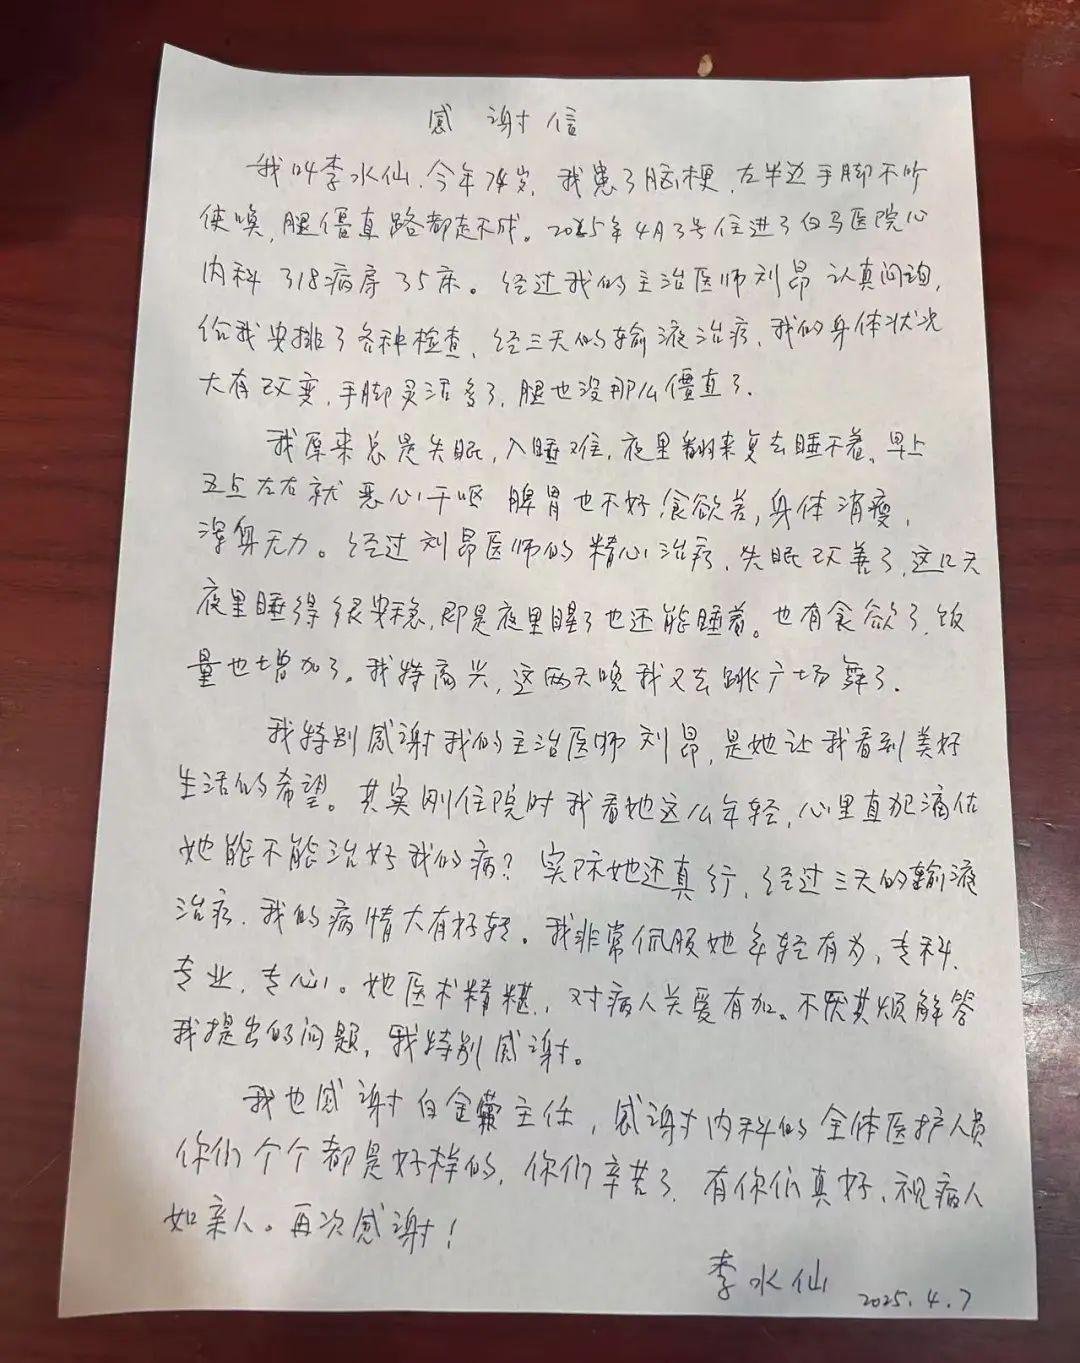 感谢信
我叫李水仙，今年74岁，我患了脑梗，左半边手脚不听
使唤，腿僵直路都走不成。2025年4月3号住进了白马医院心
内科318病房35床。经过我的主治医师刘昂认真问询，
给我安排了各种检查，经三天的输液治疗，我的身体状况
大有改变，手脚灵活多了，腿也没那么僵直了.
我原来总是失眠，入睡难，夜里翻来复去睡不着。早上
五点左右就恶心干呕 脾胃也不好，食欲差，身体消瘦，
浑身无力。经过刘昂医师的精心治疗，失眠改善了，这几天
夜里睡得很安稳，即是夜里醒了也还能睡着。也有食欲了，饭
量也增加了。我特高兴，这两天晚我又去跳广场舞了.
我特别感谢我的主治医师刘昂，是她让我看到美好
生活的希望。其实刚住院时我看她这么年轻，心里直犯滴估
她能不能治好我的病？实际她还真行，经过三天的输液
治疗，我的病情大有好转。我非常佩服她年轻有为，专科、
专业、专心。她医术精湛，对病人关爱有加。不厌其烦解答
我提出的问题，我特别感谢。
我也感谢白金荣主任，感谢内科的全体医护人员
你们个个都是好样的，你们辛苦了，有你们真好、视病人
如亲人。再次感谢！
李水仙
2025.4.7